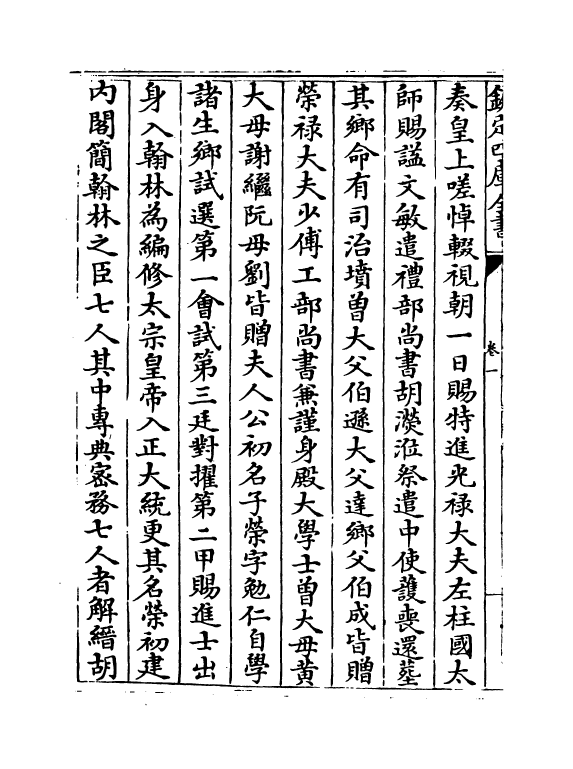 欽定四庫全書
卷一
奏皇上嗟悼輟視朝一日賜特進光禄大夫左柱國太
師賜諡文敏遣禮部尚書胡濙涖祭遣中使護喪還塟
其鄉命有司治墳曽大父伯遜大父達鄉父伯成皆贈
榮禄大夫少傅工部尚書兼謹身殿大學士曽大母黄
大母謝繼阮母劉皆贈夫人公初名子榮字勉仁自學
諸生鄉試選第一會試第三廷對擢第二甲賜進士出
身入翰林為編修太宗皇帝入正大統更其名榮初建
内閣簡翰林之臣七人其中專典宻務七人者解縉胡